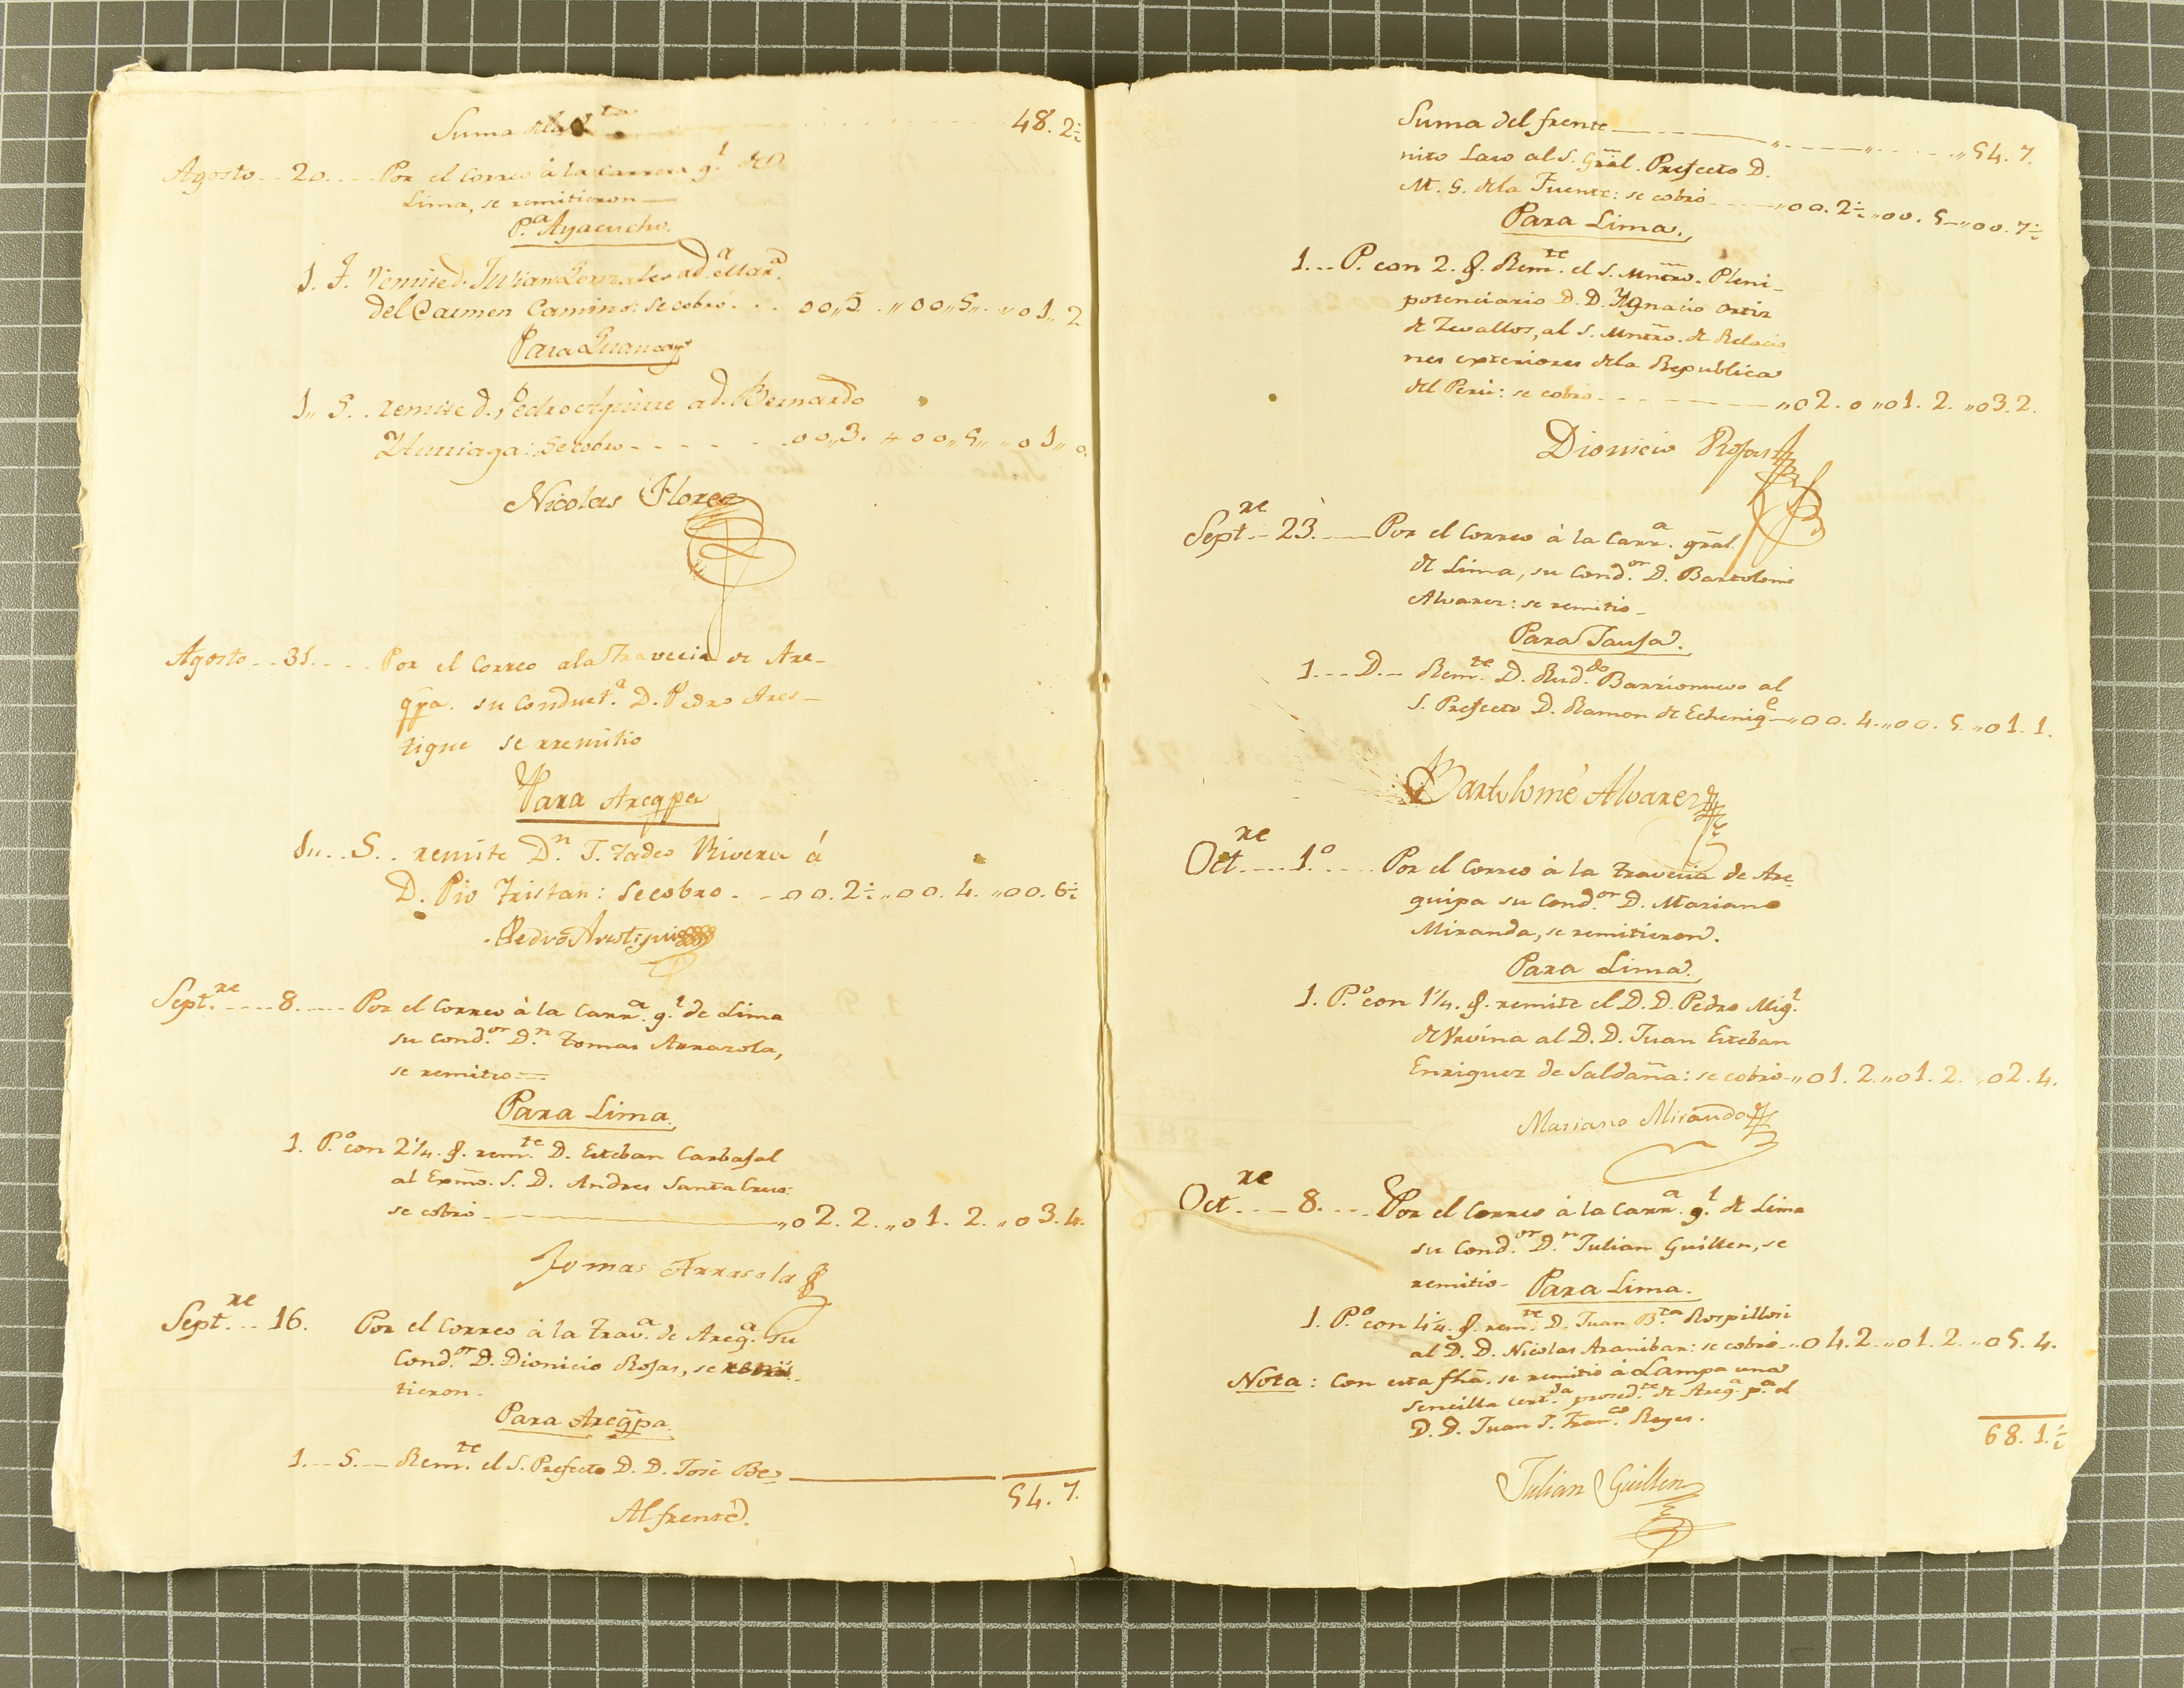 Suma dela 48. 2½
Agosto .. 20. .... Por el Correo à la Carrera g.l de
Lima, se remitieron —
P.a Ayacucho.
1. J. remite d. Julian Gonzales a d.a Mar.a
del Carmen Camino: se cobró . . . 00,,5. ,,00,,5,, . ,,01,,2
Para Guancay.o
1,, S. . remite d. Pedro Aguirre a d. Bernardo
se cobro - - - - - . 00,,3. ,, 00,,5,, ,,01,,0.
Nicolas Florez
Agosto .. 31. ... Por el Correo ala Travecia de Are-
qpa. su Conduct.a D. Pedro Ares-
tigue se rremitio
Para Areqpa
S. . remite D.n J. Tadeo Rivera á
D. Pio Tristan: se cobro . - 00. 2½ ,,00. 4. ,,00. 6½
Pedro Arestigui
Sept.re .... 8. .... Por el Correo à la Carr.a g.l de Lima
su cond.or D.n Tomas Arrazola,
se remitio =
Para Lima.
1. P.o con 2¼. g. rem.te D. Esteban Carbajal
al Exmo. S. D. Andres Santa Cruz:
se cobró — ,,02. 2. ,,01. 2. ,,03. 4.
Tomas Arrasola
Sept.re ... 16. Por el Correo à la Trav.a de Areq.a su
Cond.or D. Dionicio Rojas, se remi-
tieron.
Para Areqpa.
1. .. S. — Rem.te el S. Prefecto D. D. José Be-
54. 7.
Al frente.
Suma del frente — ,, - - - ,, - - - ,,54. 7.
nito Laso al S. Gral. Prefecto D.
M. G. dela Fuente: se cobró — ,,00. 2½ ,,00. 5 — ,,00. 7½
Para Lima.
1... P. con 2. g. Rem.te el S. Mntro. Pleni-
potenciario D. D. Ygnacio Ortiz
de Zevallos, al S. Mntro. de Relacio
nes exteriores dela Republica
del Perú: se cobró - - - ,,02. 0 ,,01. 2. ,,03. 2.
Dionicio Rojas
Sept.re - 23. — Por el Correo à la Carr.a gral.
de Lima, su Cond.or D. Bartolomé
Alvarez: se remitio -
Para Jauja.
1 ... D. - Rem.te D. Rud.do Barrionuevo al
S. Prefecto D. Ramon de Echeniq.e - ,,00. 4. ,,00. 5. ,,01. 1.
Bartolomé Alvarez
Oct.re .... 1.o .... Por el Correo à la Travecia de Are-
quipa su Cond.or D. Mariano
Miranda, se remitieron.
Para Lima.
1. P.o con 1¼. g. remite el D. D. Pedro Mig.l
de Urvina al D. D. Juan Esteban
Enriquez de Saldaña: se cobró - ,,01. 2. ,,01. 2. ,,02. 4.
Mariano Miranda
Oct.re ... 8. .... Por el Correo à la Carr.a g.l de Lima
su Cond.or D.n Julian Guillen, se
remitio - Para Lima.
1. P.o con 4¼. g. rem.te D. Juan B.ta Rospillosi
al D. D. Nicolas Aranibar: se cobró - ,,04. 2. ,,01. 2. ,,05. 4.
Nota: Con esta fha. se remitio á Lampa una
sencilla cert.da proced.te de Areq.a p.a el
D. D. Juan J. Fran.co Reyes.
68. 1.½
Julian Guillen